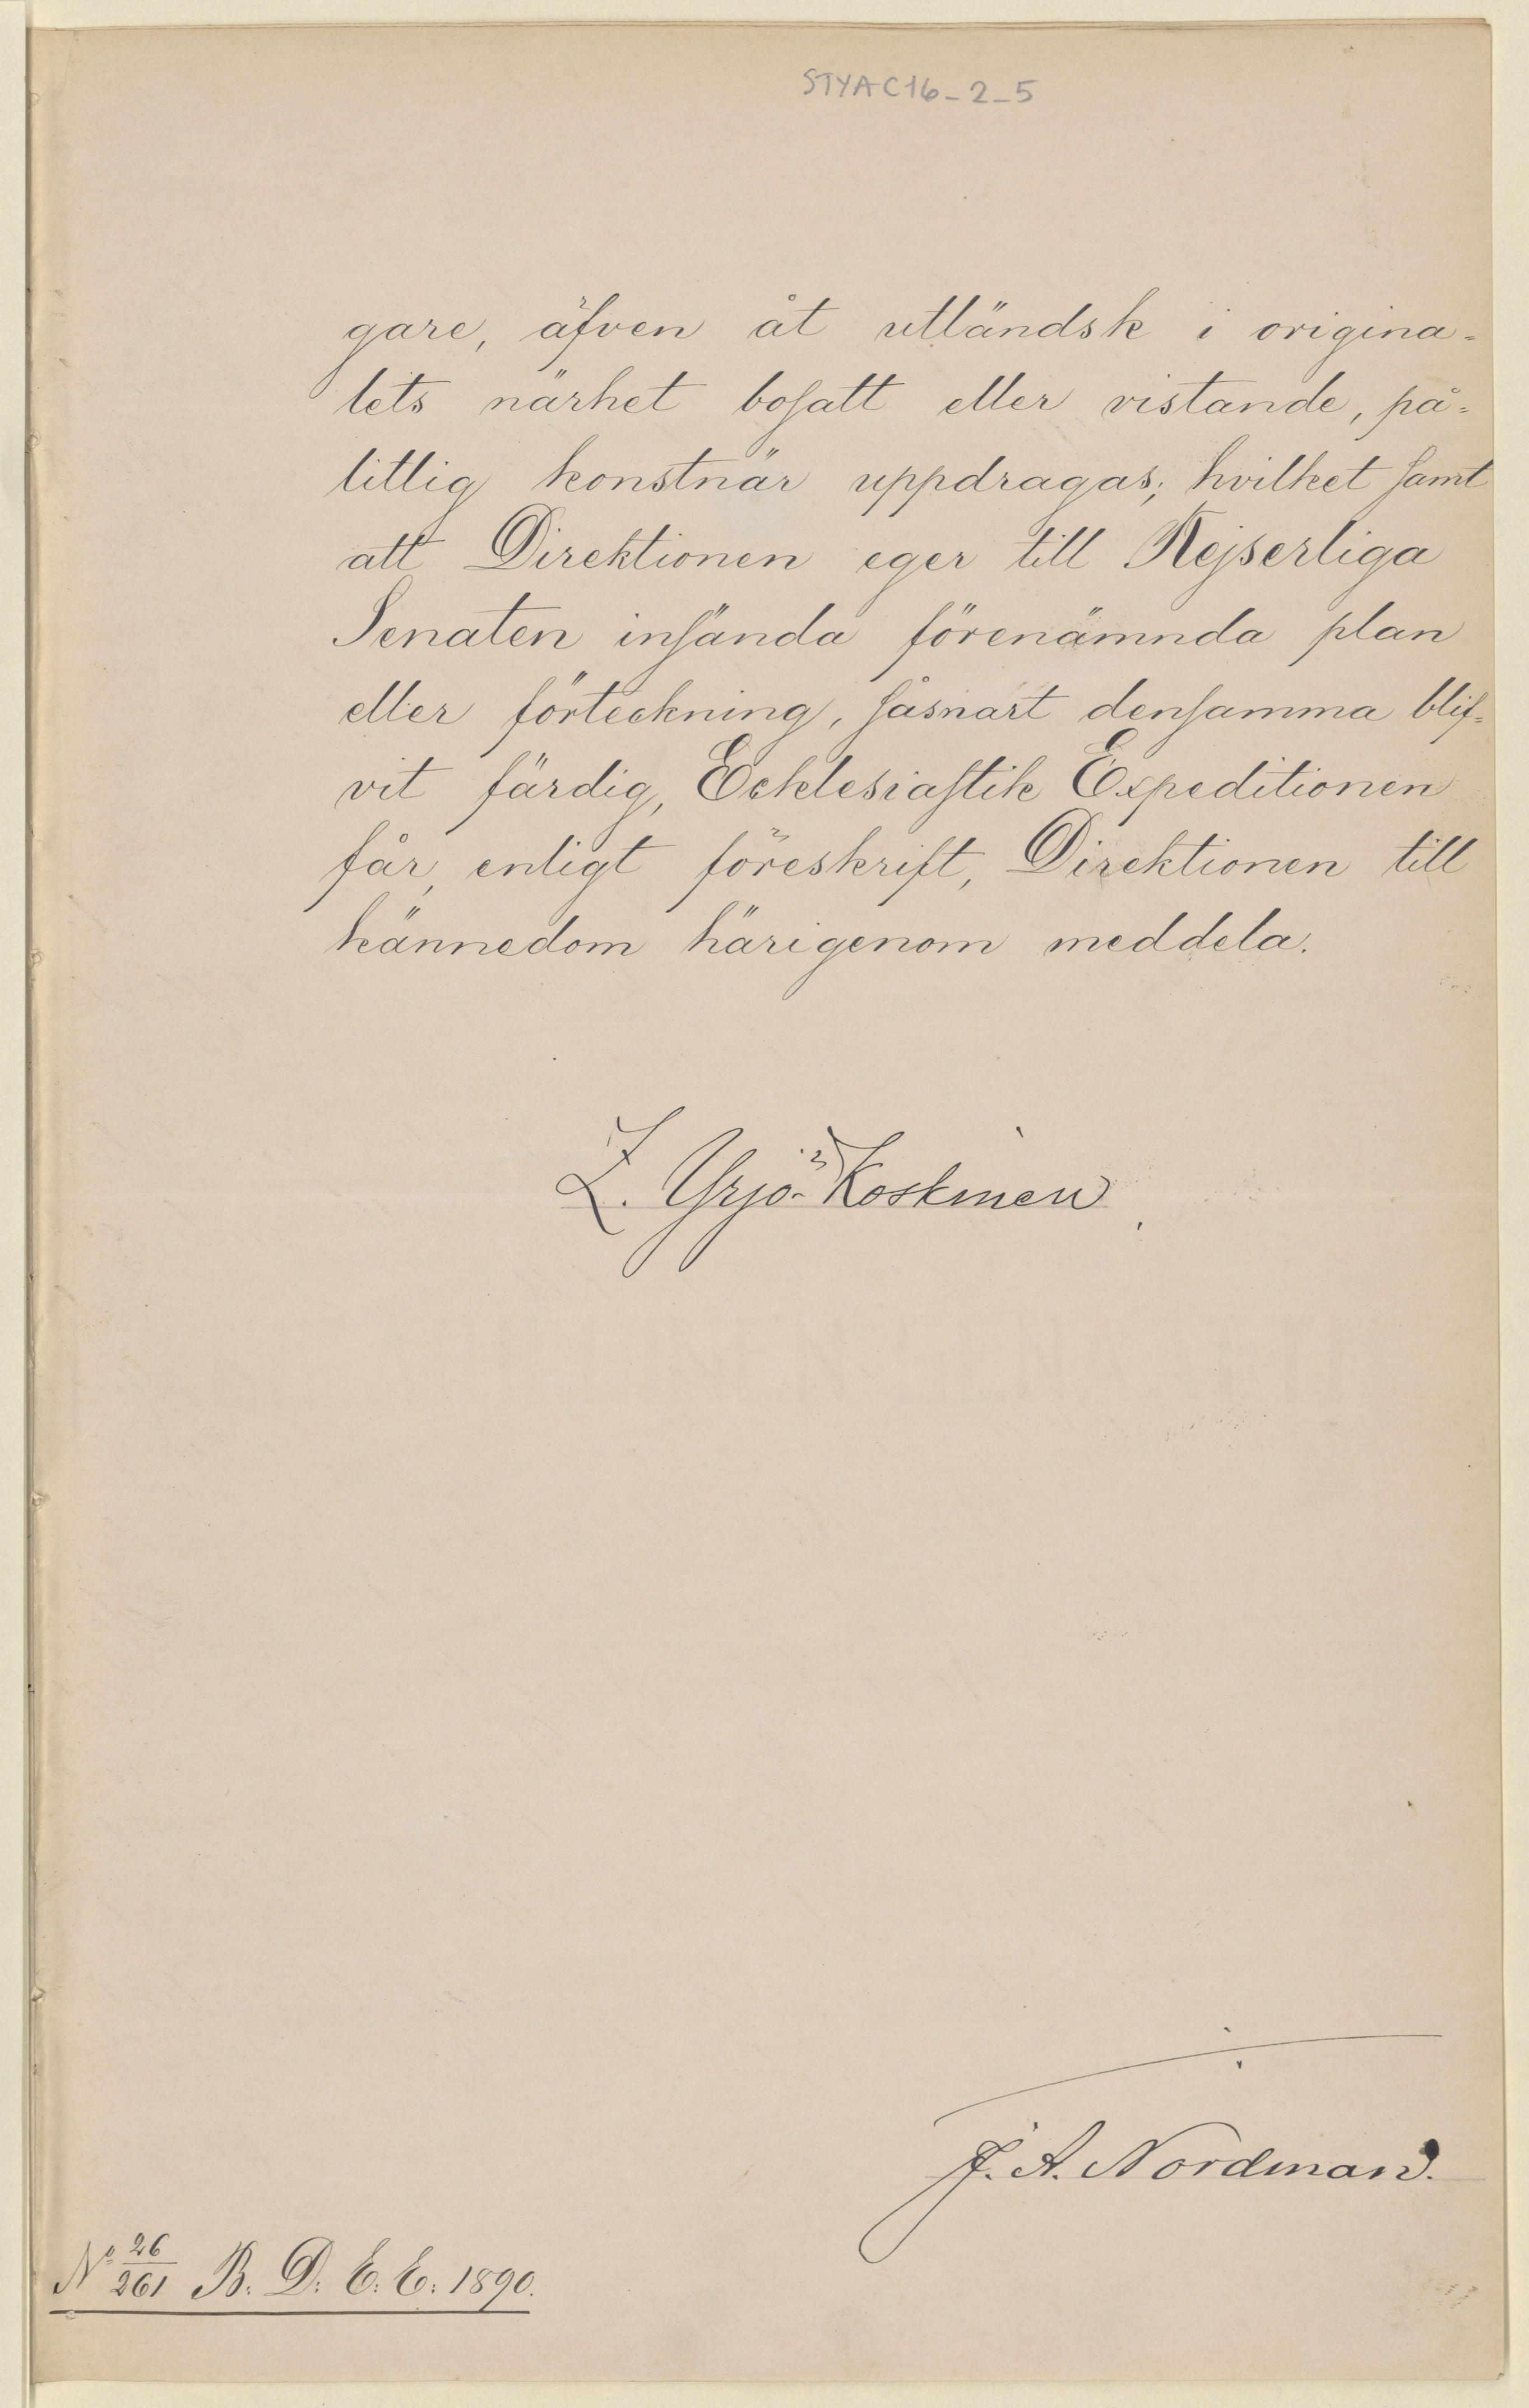 STYAC16_2_5
gare, äfven åt utländsk i origina-
lets närhet bosatt eller vistande, på-
litlig konstnär uppdragas; hvilket samt
att Direktionen eger till Kejserliga
Senaten insända förenämnda plan
eller förteckning, såsnart densamma blif-
vit färdig, Ecklesiastik Expeditionen
får, enligt föreskrift, Direktionen till
kännedom härigenom meddela.
Z. Yrjö-Koskinen
J. A. Nordman.
No 26/261 B. D. E. E. 1890.